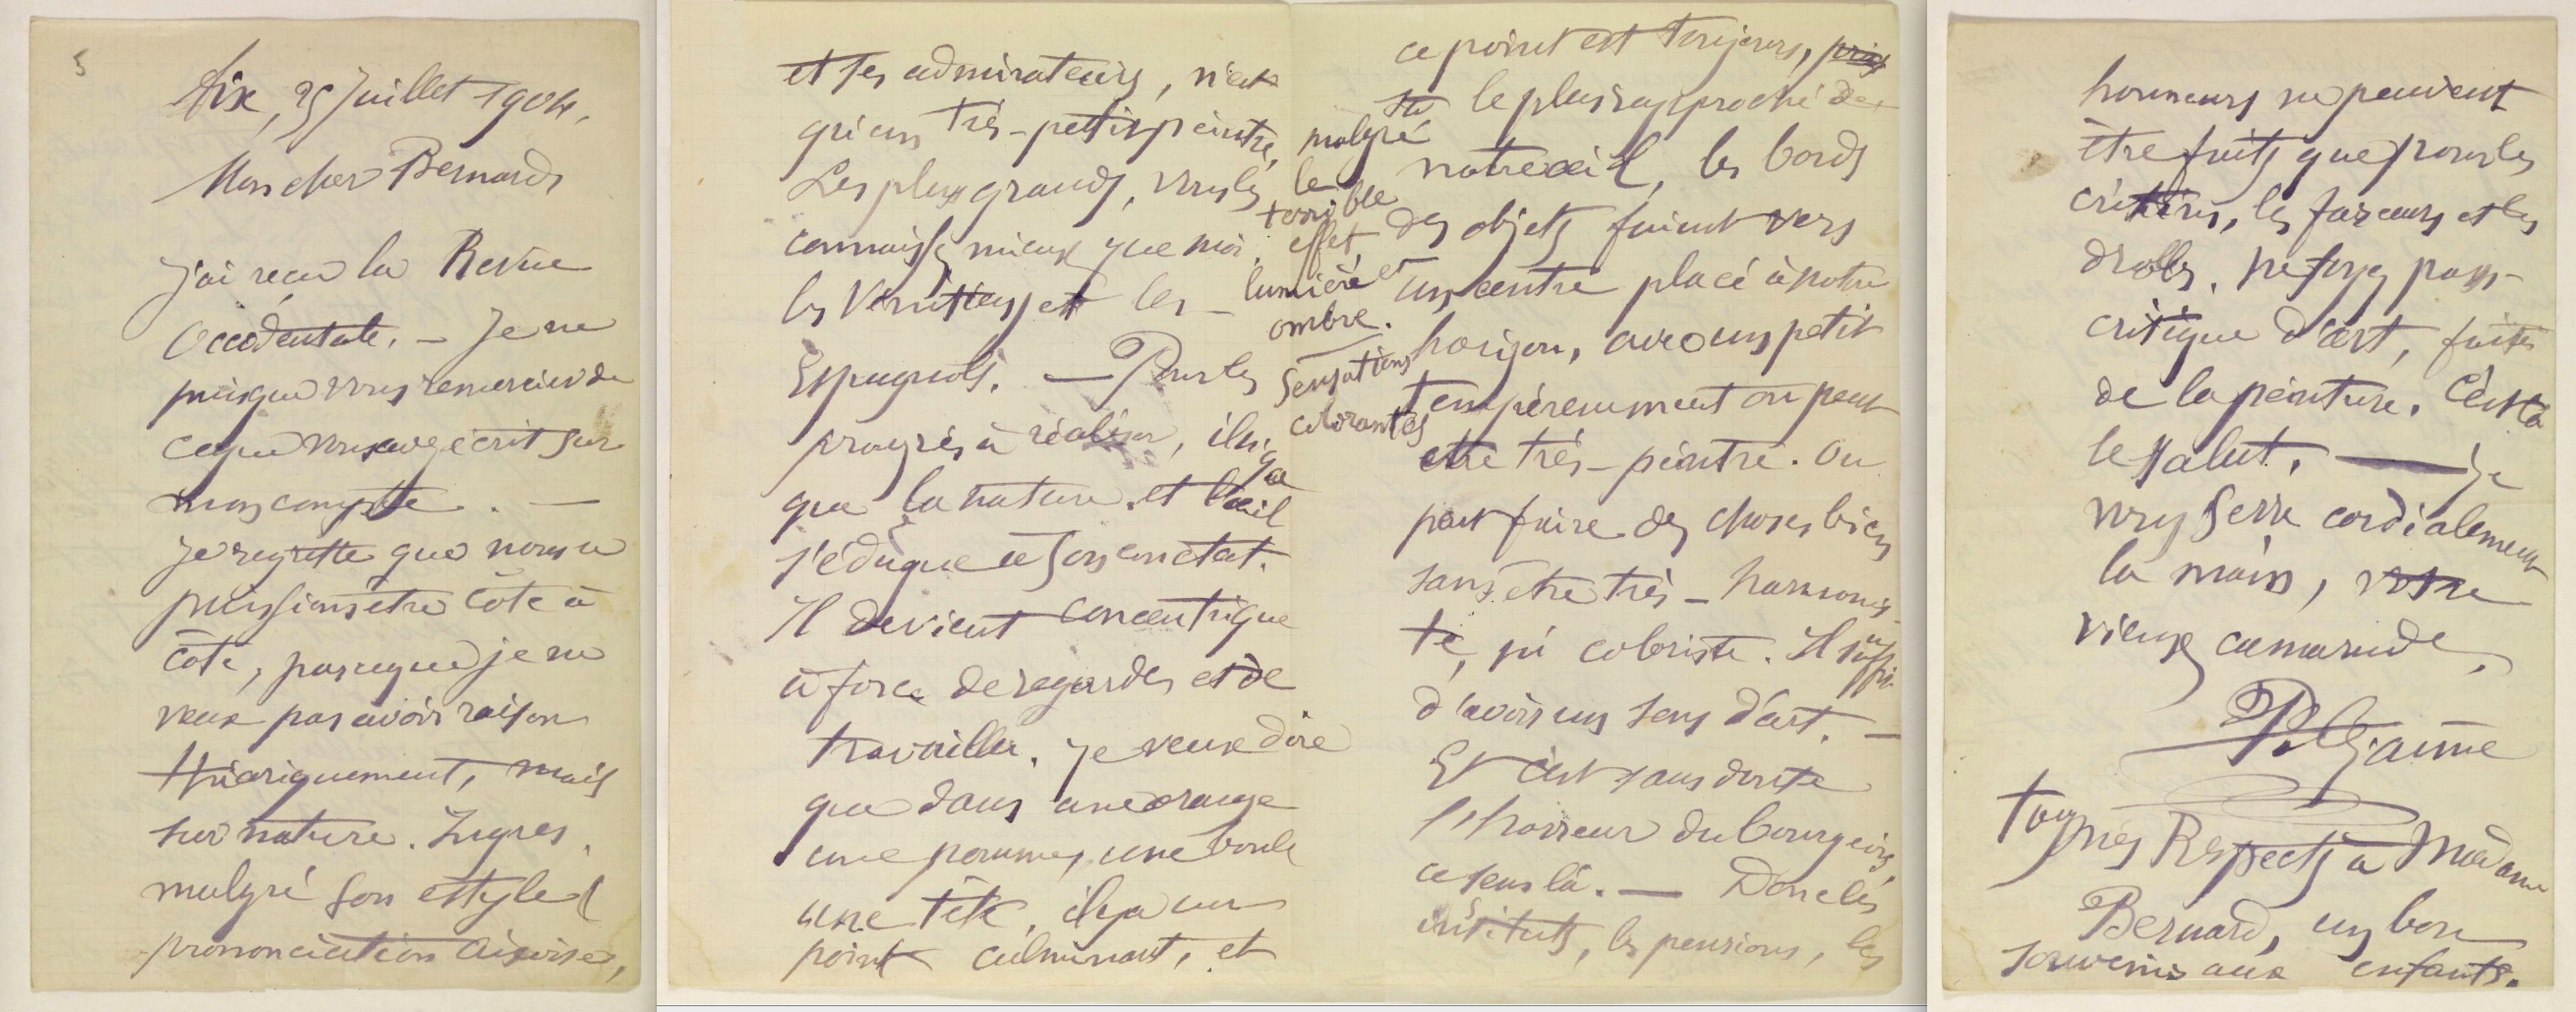 5
Aix, 25 Juillet 1904,
Mon cher Bernard,
J'ai reçu la Revue
Occidentale. — Je ne
puis que vous remercier de
ce que vous avez écrit sur
mon compte. —
Je regrette que nous ne
puissions etre côte à
côte, parceque je ne
veux pas avoir raison
théoriquement, mais
sur nature. Ingres,
malgré son estyle (
prononciation aixoise,
et ses admirateurs, n'est
qu'un très-petit peintre.
Les plus grands, vous les
connaissez mieux que moi.
les Vénitiens et les —
Espagnols. — Pour les
progrès à réaliser, il n'y a
que la nature. et l'œil
s'éduque à son contact.
Il devient concentrique
à force de regarder et de
travailler. je veux dire
que dans une orange
une pomme, une boule
une tête, il y a un
point culminant, et
ce point est toujours,
malgré
le
terrible
effet
lumière et
ombre.
sensations
colorantes
le plus rapproché de
notre œil, les bords
des objets fuient vers
un centre placé à notre
horizon, avec un petit
tempérament on peut
etre très-peintre. On
peut faire des choses bien
sans être très-harmonis-
te, ni coloriste. Il suffit
d'avoir un sens d'art. —
Et c'est sans doute
l'horreur du bourgeois,
ce sens là. — Donc les
instituts, les pensions, les
honneurs ne peuvent
être faits que pour les
crétins, les farceurs et les
drôles. ne soyez pas-
critique d'art, faites
de la peinture. C'est là
le salut. — Je
vous serre cordialement
la main, votre
vieux camarade,
P. Cézanne
tous mes Respects à Madame
Bernard, un bon
souvenir aux enfants.